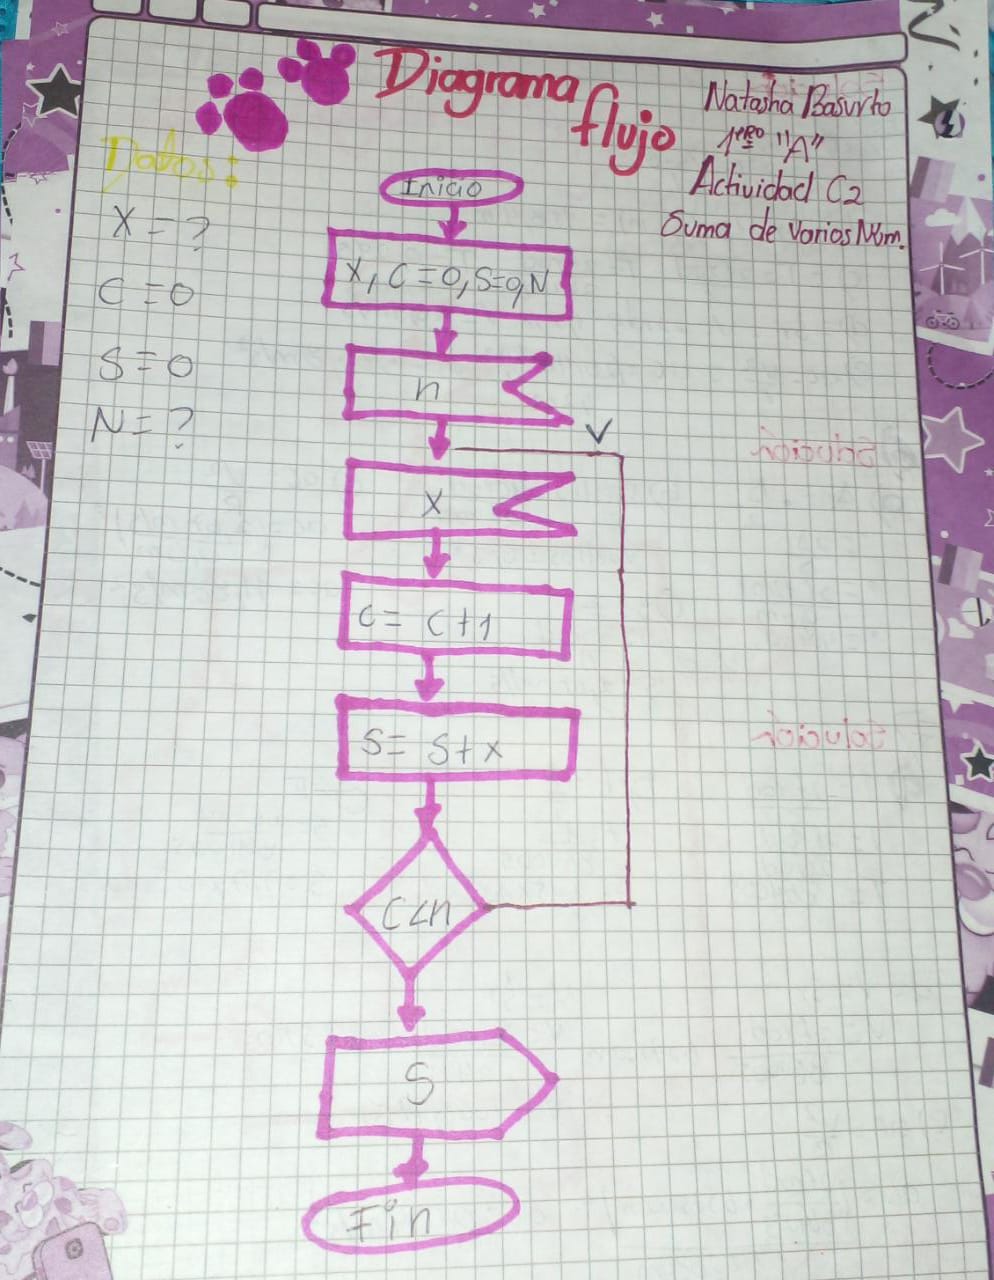 Diagrama
flujo
Natasha Basurto
1ero "A"
Actividad C2
Suma de varios Núm.
Datos:
X = ?
C = 0
S = 0
N = ?
Inicio
X, C = 0, S=0, N
n
V
X
C = C+1
S = S+x
C<n
S
Fin
Solución
Solución